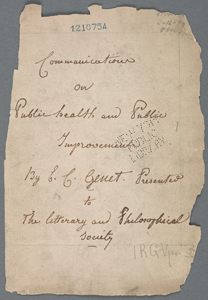 121075A
Communications
on
Public health and Public
Improvement
By E. C. Genet. Presented
to
The litterary and Philosophical
Society
NEW YORK
PUBLIC
LIBRARY